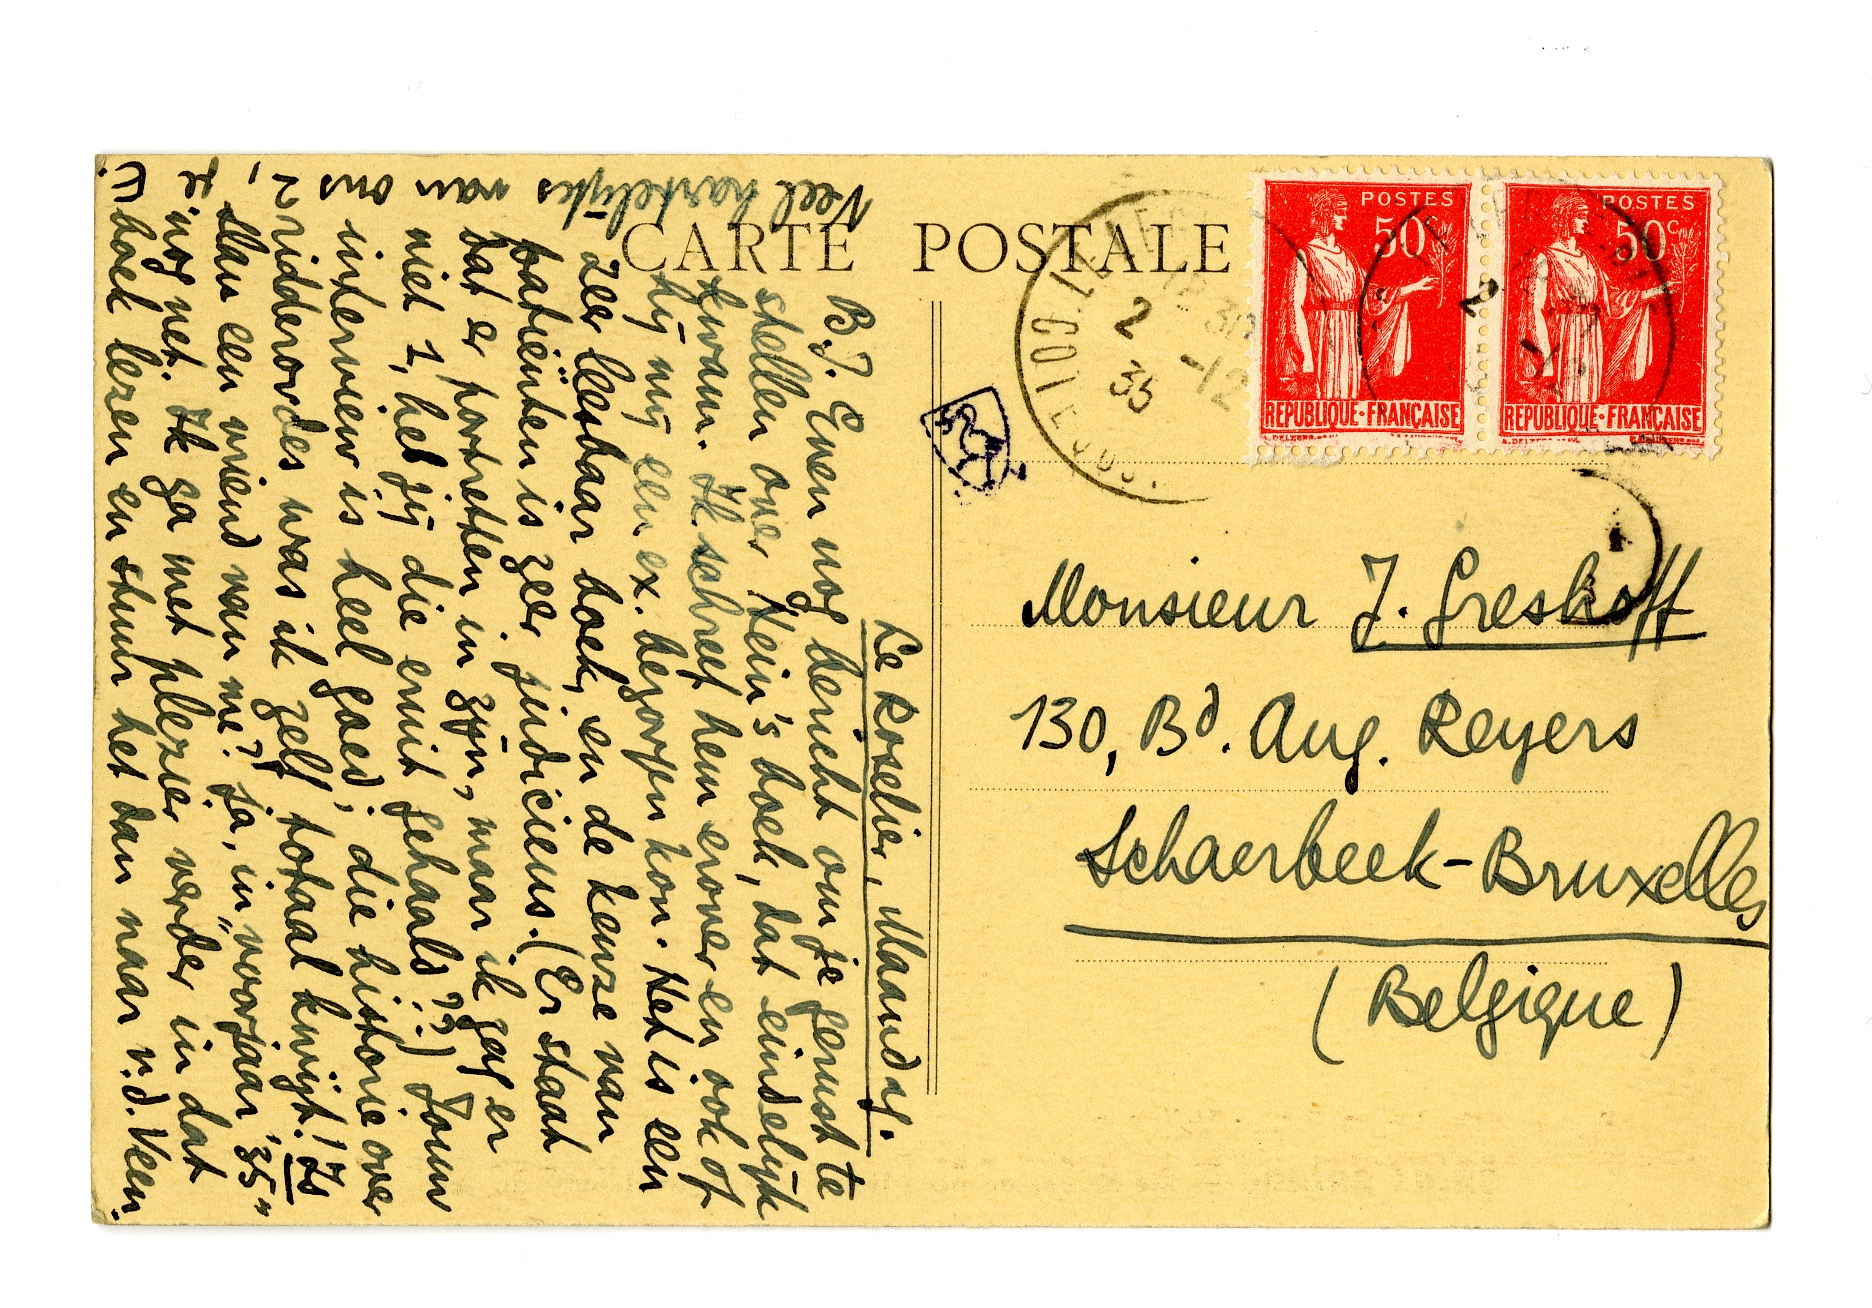 CARTE POSTALE
POSTES
50c
REPUBLIQUE·FRANÇAISE
POSTES
50c
REPUBLIQUE·FRANÇAISE
2 -12
35
Monsieur J. Greshoff
130, Bd. Aug. Reyers
Schaerbeek-Bruxelles
(Belgique)
Le Roselier, Maandag.
B.J. Even nog bericht om je gerust te
stellen over Hein's boek, dat eindelijk
kwam. Ik schreef hem erover en ook of
hij mij een ex. bezorgen kon. Het is een
zeer leesbaar boek, en de keuze van
patiënten is zeer judicieus. (Er staat
dat er portretten in zijn, maar ik zag er
niet 1, heb jij die eruit gehaald??) Jouw
interview is heel goed; die historie over
ridderordes was ik zelf totaal kwijt! Is
Slau een vriend van me? Ja, in "voorjaar '35"
nog net. Ik ga met plezier verder in dat
boek lezen en stuur het dan naar v.d. Veen.
Veel hartelijks van ons 2, je
E.